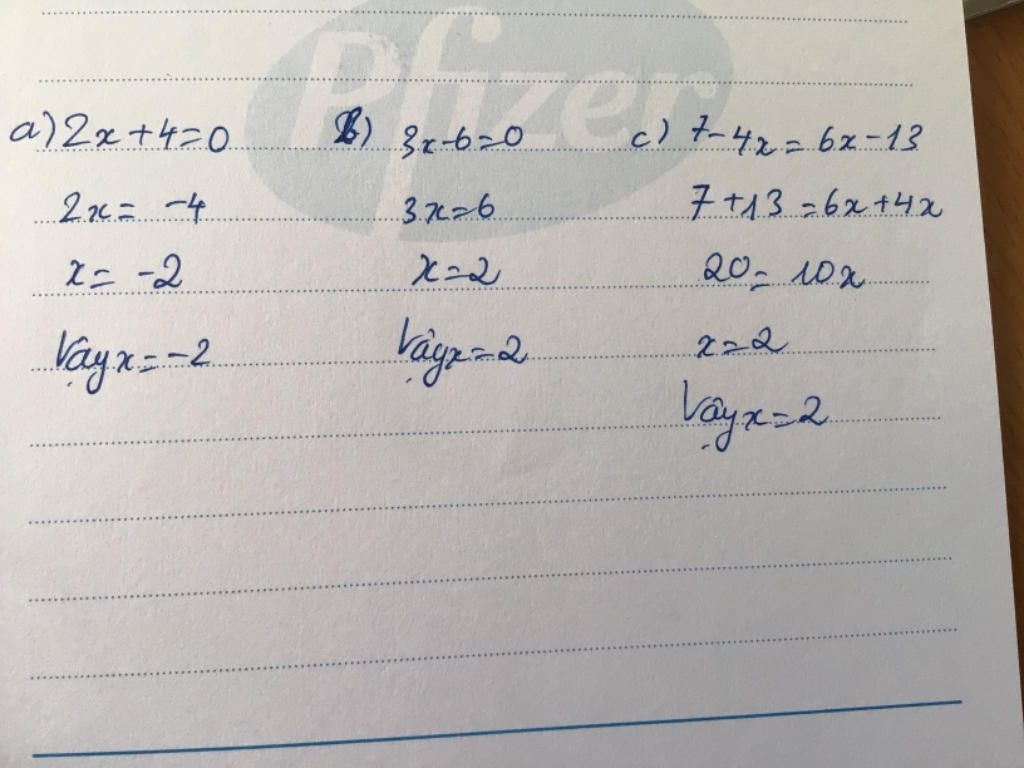 Pfizer
a) 2x + 4 = 0
2x = -4
x = -2
Vậy x = -2
b) 3x - 6 = 0
3x = 6
x = 2
Vậy x = 2
c) 7 - 4x = 6x - 13
7 + 13 = 6x + 4x
20 = 10x
x = 2
Vậy x = 2